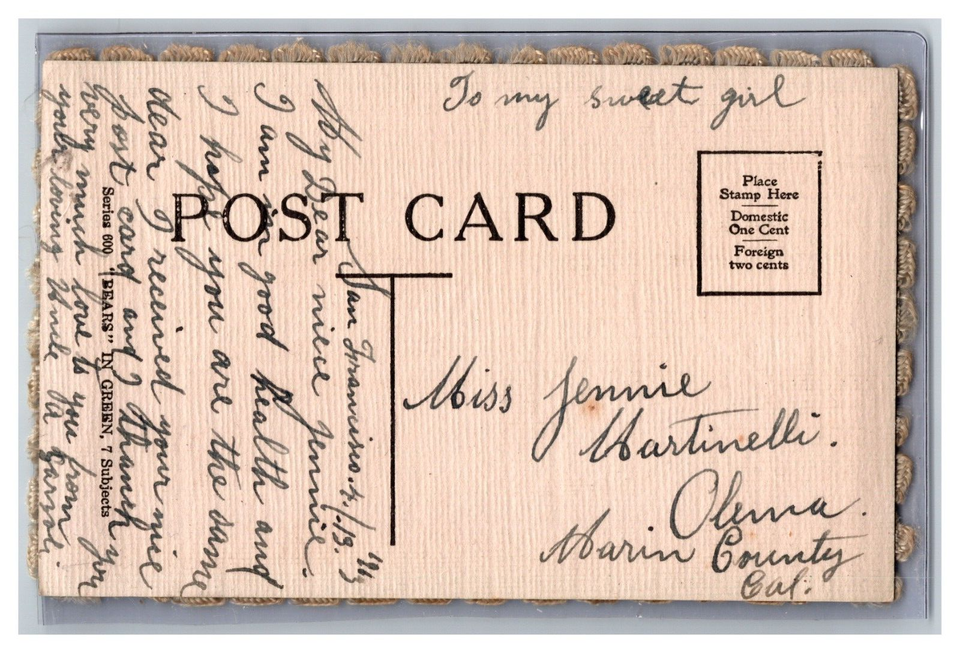 To my sweet girl
POST CARD
Place
Stamp Here
Domestic
One Cent
Foreign
two cents
Miss Jennie
Martinelli.
Olema.
Marin County
Cal.
San Francisco. 4/19. 1913
My Dear niece Jennie.
I am in good health and
I hope you are the same
dear I received your nice
post card and I thanch you
very much love to you from
your loving Uncle
Series 600 "BEARS" IN GREEN, 7 Subjects